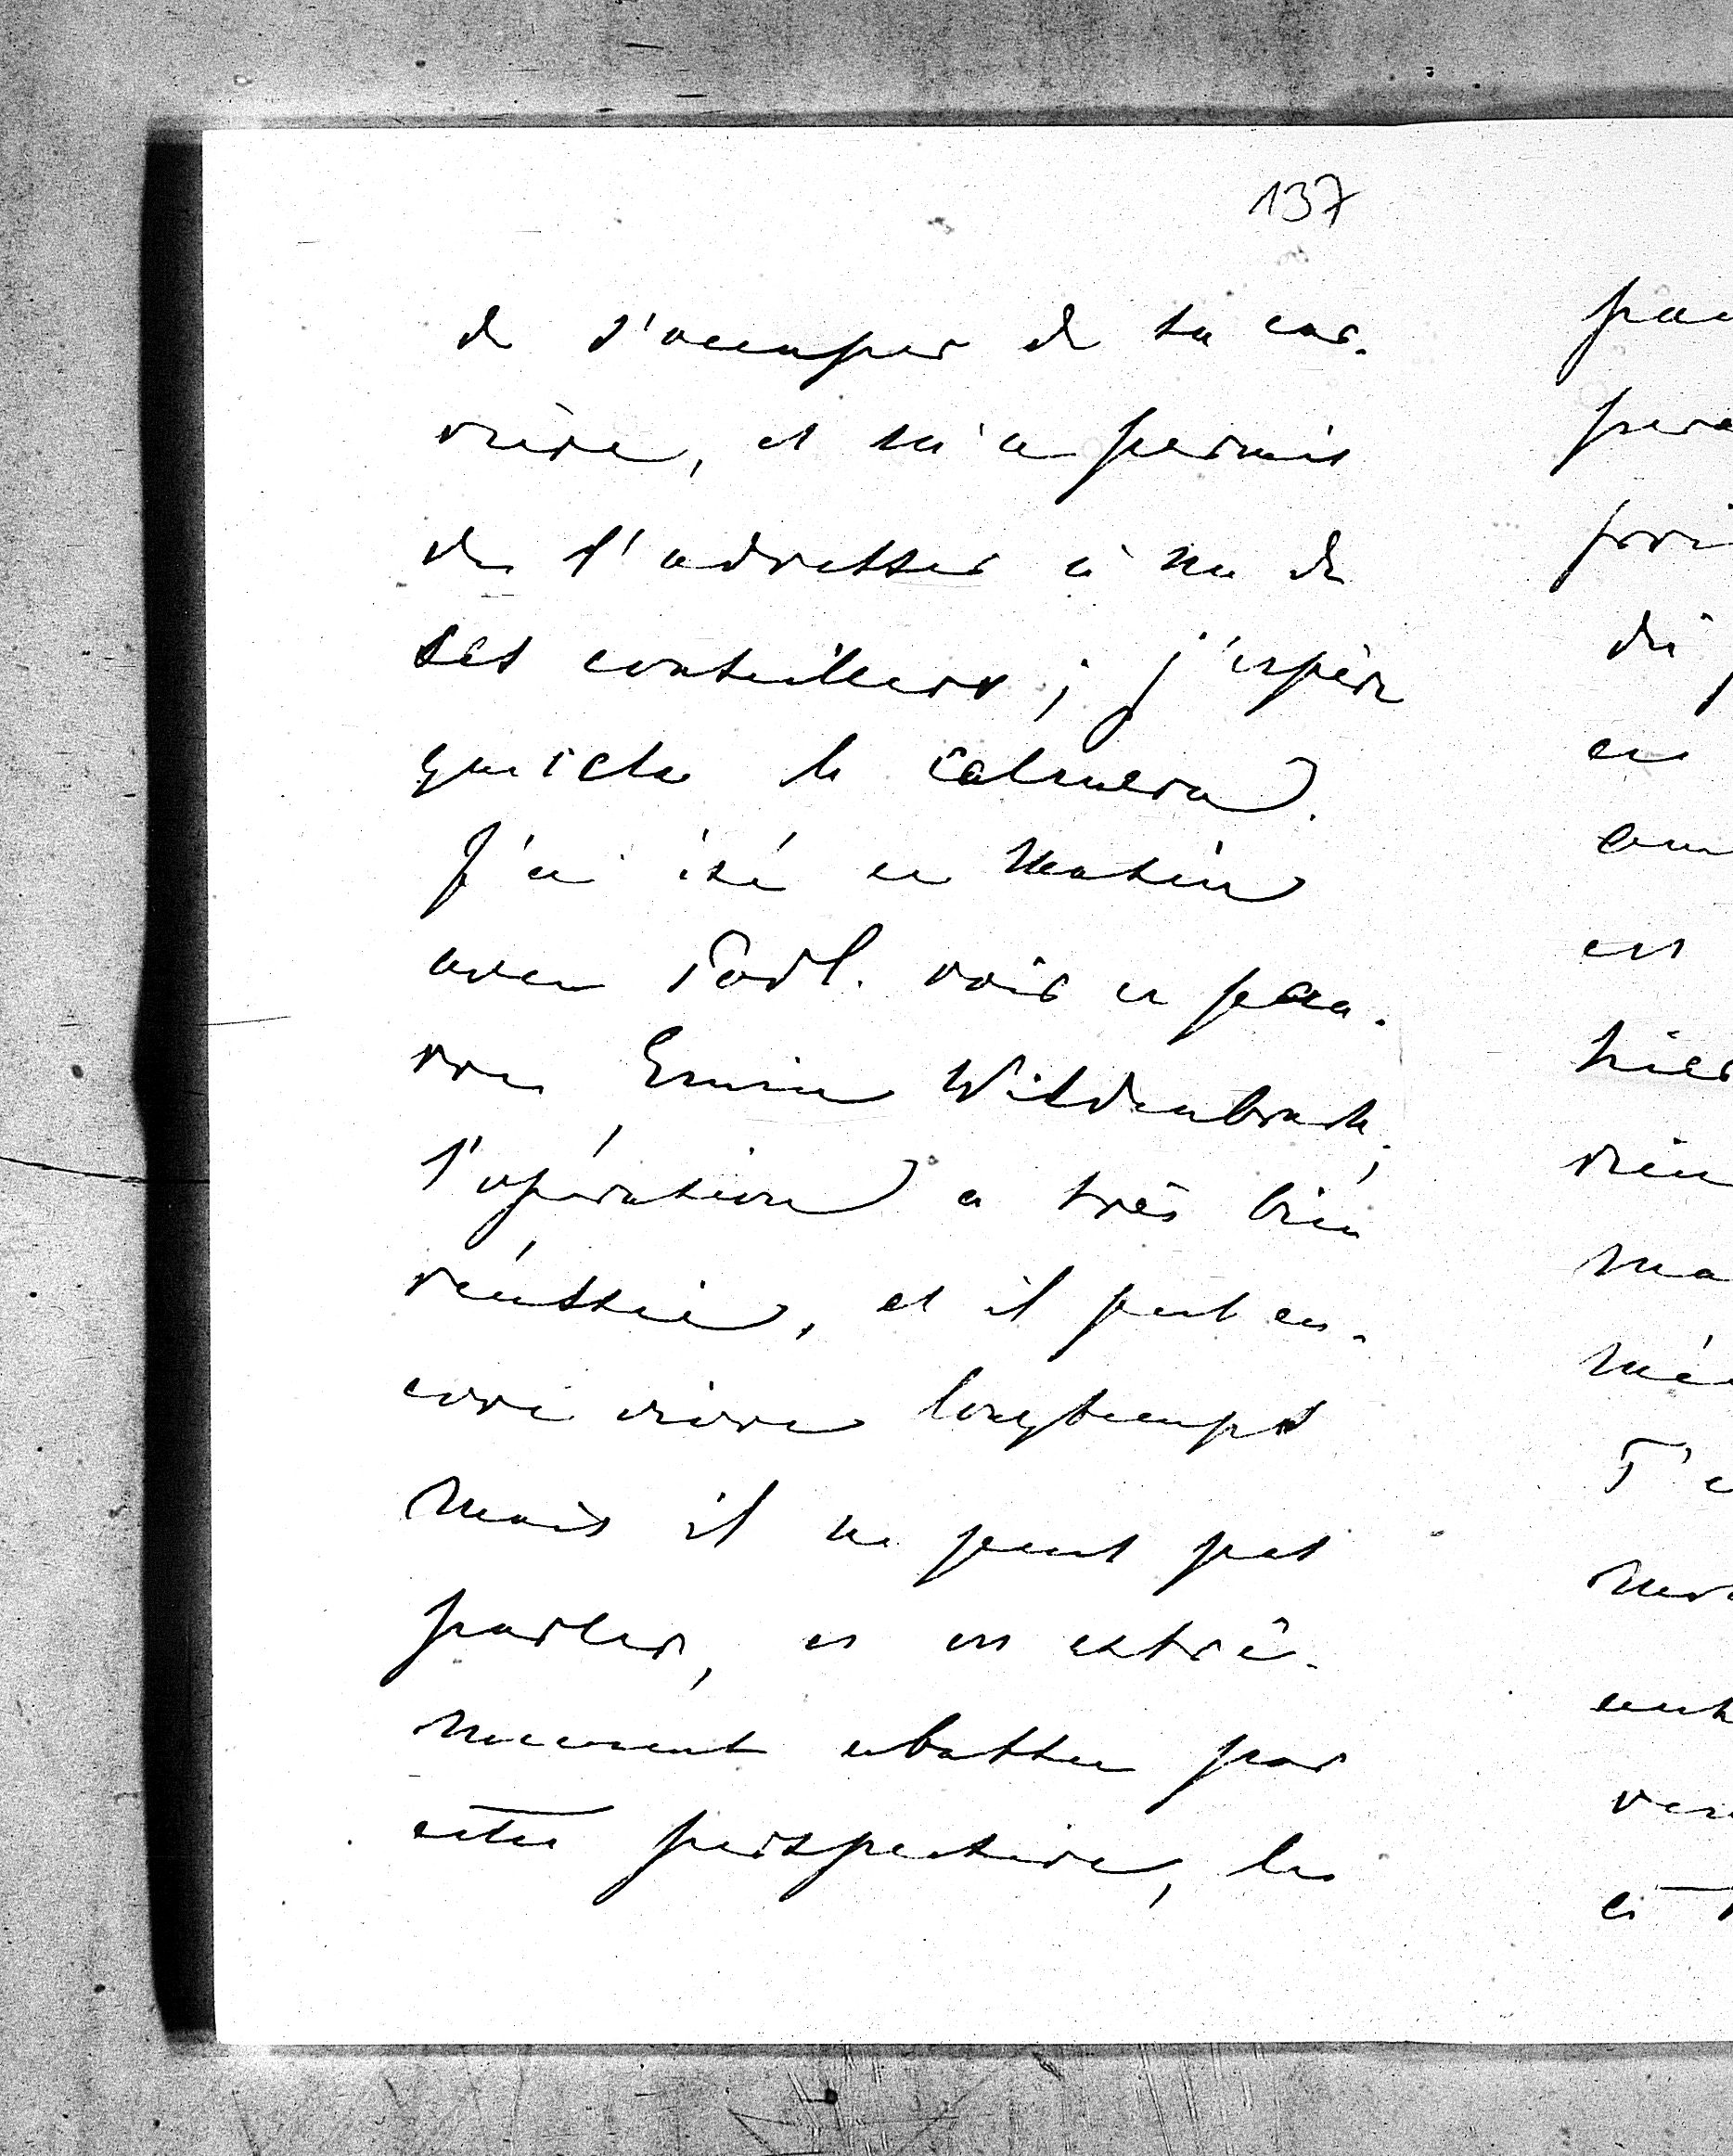 137
de s'occuper de sa car-
rière, et m'a permis
de l'adresser à un de
ses conseillers ; j'espère
que cela le calmera.
J'ai été ce matin
avec voir ce pau-
vre Ernin Wildenbruch ;
l'opération a très bien
réussie, et il peut en-
core vivre longtemps
mais il ne peut pas
parler, et est extrê-
mement abattu par
cette perspective, les